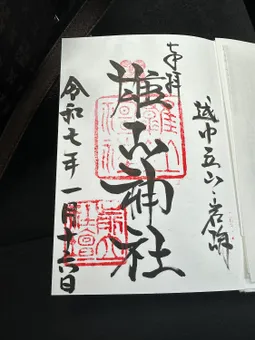 奉拝
越中立山・岩峅
雄山神社
令和七年一月十六日